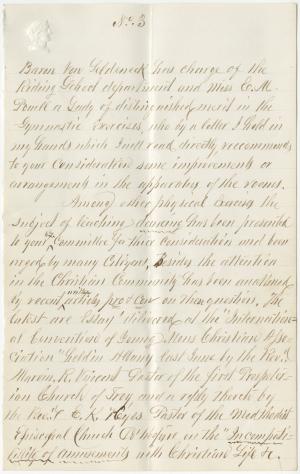 No 3
Baron Von Geldeneck has charge of the
Riding School department and Miss E. M.
Powell a Lady of distinguished merit in the
Gymnastic Exercises, who by a letter I hold in
my hands which I will read, directly recommends
to your Consideration some improvements or
arrangements in the apparatus of the rooms.
Among other physical Exercises the
subject of teaching dancing has been presented
to your Committee for their Consideration and been
urged by many Citizens, Besides the attention
in the Christian Community has been awakened
by recent written articles pro & Con on the question. The
latest are Essays delivered at the Internation-
al Convention of Young Mens Christian Asso-
ciation held in Albany last June by the Rev.
Marvin R. Vincent Pastor of the first Presbyter-
ian Church of Troy and a reply thereto by
the Rev. C. K. Keyes Pastor of the Methodist
Episcopal Church in the "Incompati-
bility of amusements with Christian Life &c.